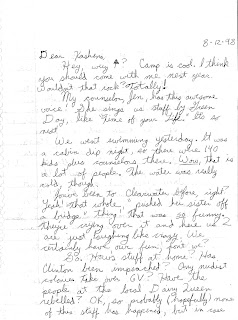 8-12-98
Dear Kashena,
Hey, wuz ↑? Camp is cool. I think
you should come with me next year.
Wouldn't that rock? Totally!
My counselor, Jen, has this awesome
voice! She sings us stuff by Green
Day, like "time of your life." It's so
neat!
We went swimming yesterday. It was
a cabin dip night, so there were 140
kids plus counselors there. Wow, that is
a lot of people. The water was really
cold, though.
You've been to Clearwater before right?
Yeah! That whole, "pushed her sister off
a bridge" thing! That was so funny,
they're crying over it and there us 2
are just laughing like crazy. We
certainly have our fun, don't we?
So, How's stuff at home? Has
Clinton been impeached? Any nudist
colonies take over GV? Have the
people at the local Dairy Queen
rebelled? OK, so probably (hopefully) none
of this stuff has happened, but in case